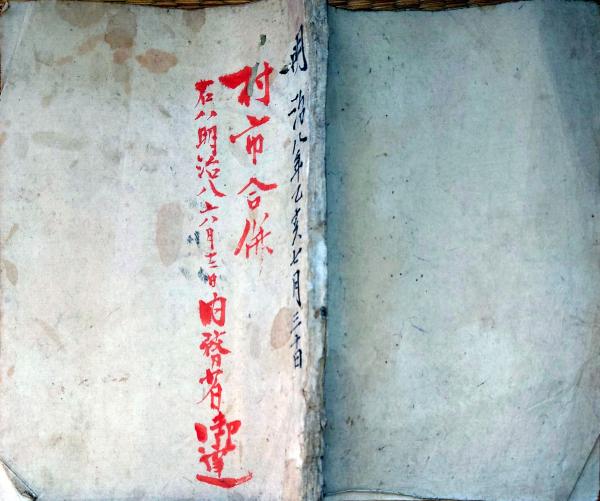 明治八年乙亥七月三十日
村市合併
右ハ明治八年六月十三日内務省御達